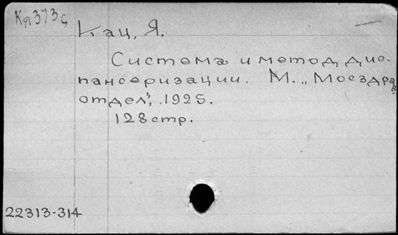 Кя373с
Кац, Я.
Система и метод дис-
пансеризации. М. „Мосздрав
отдел", 1925.
128 стр.
22313-314